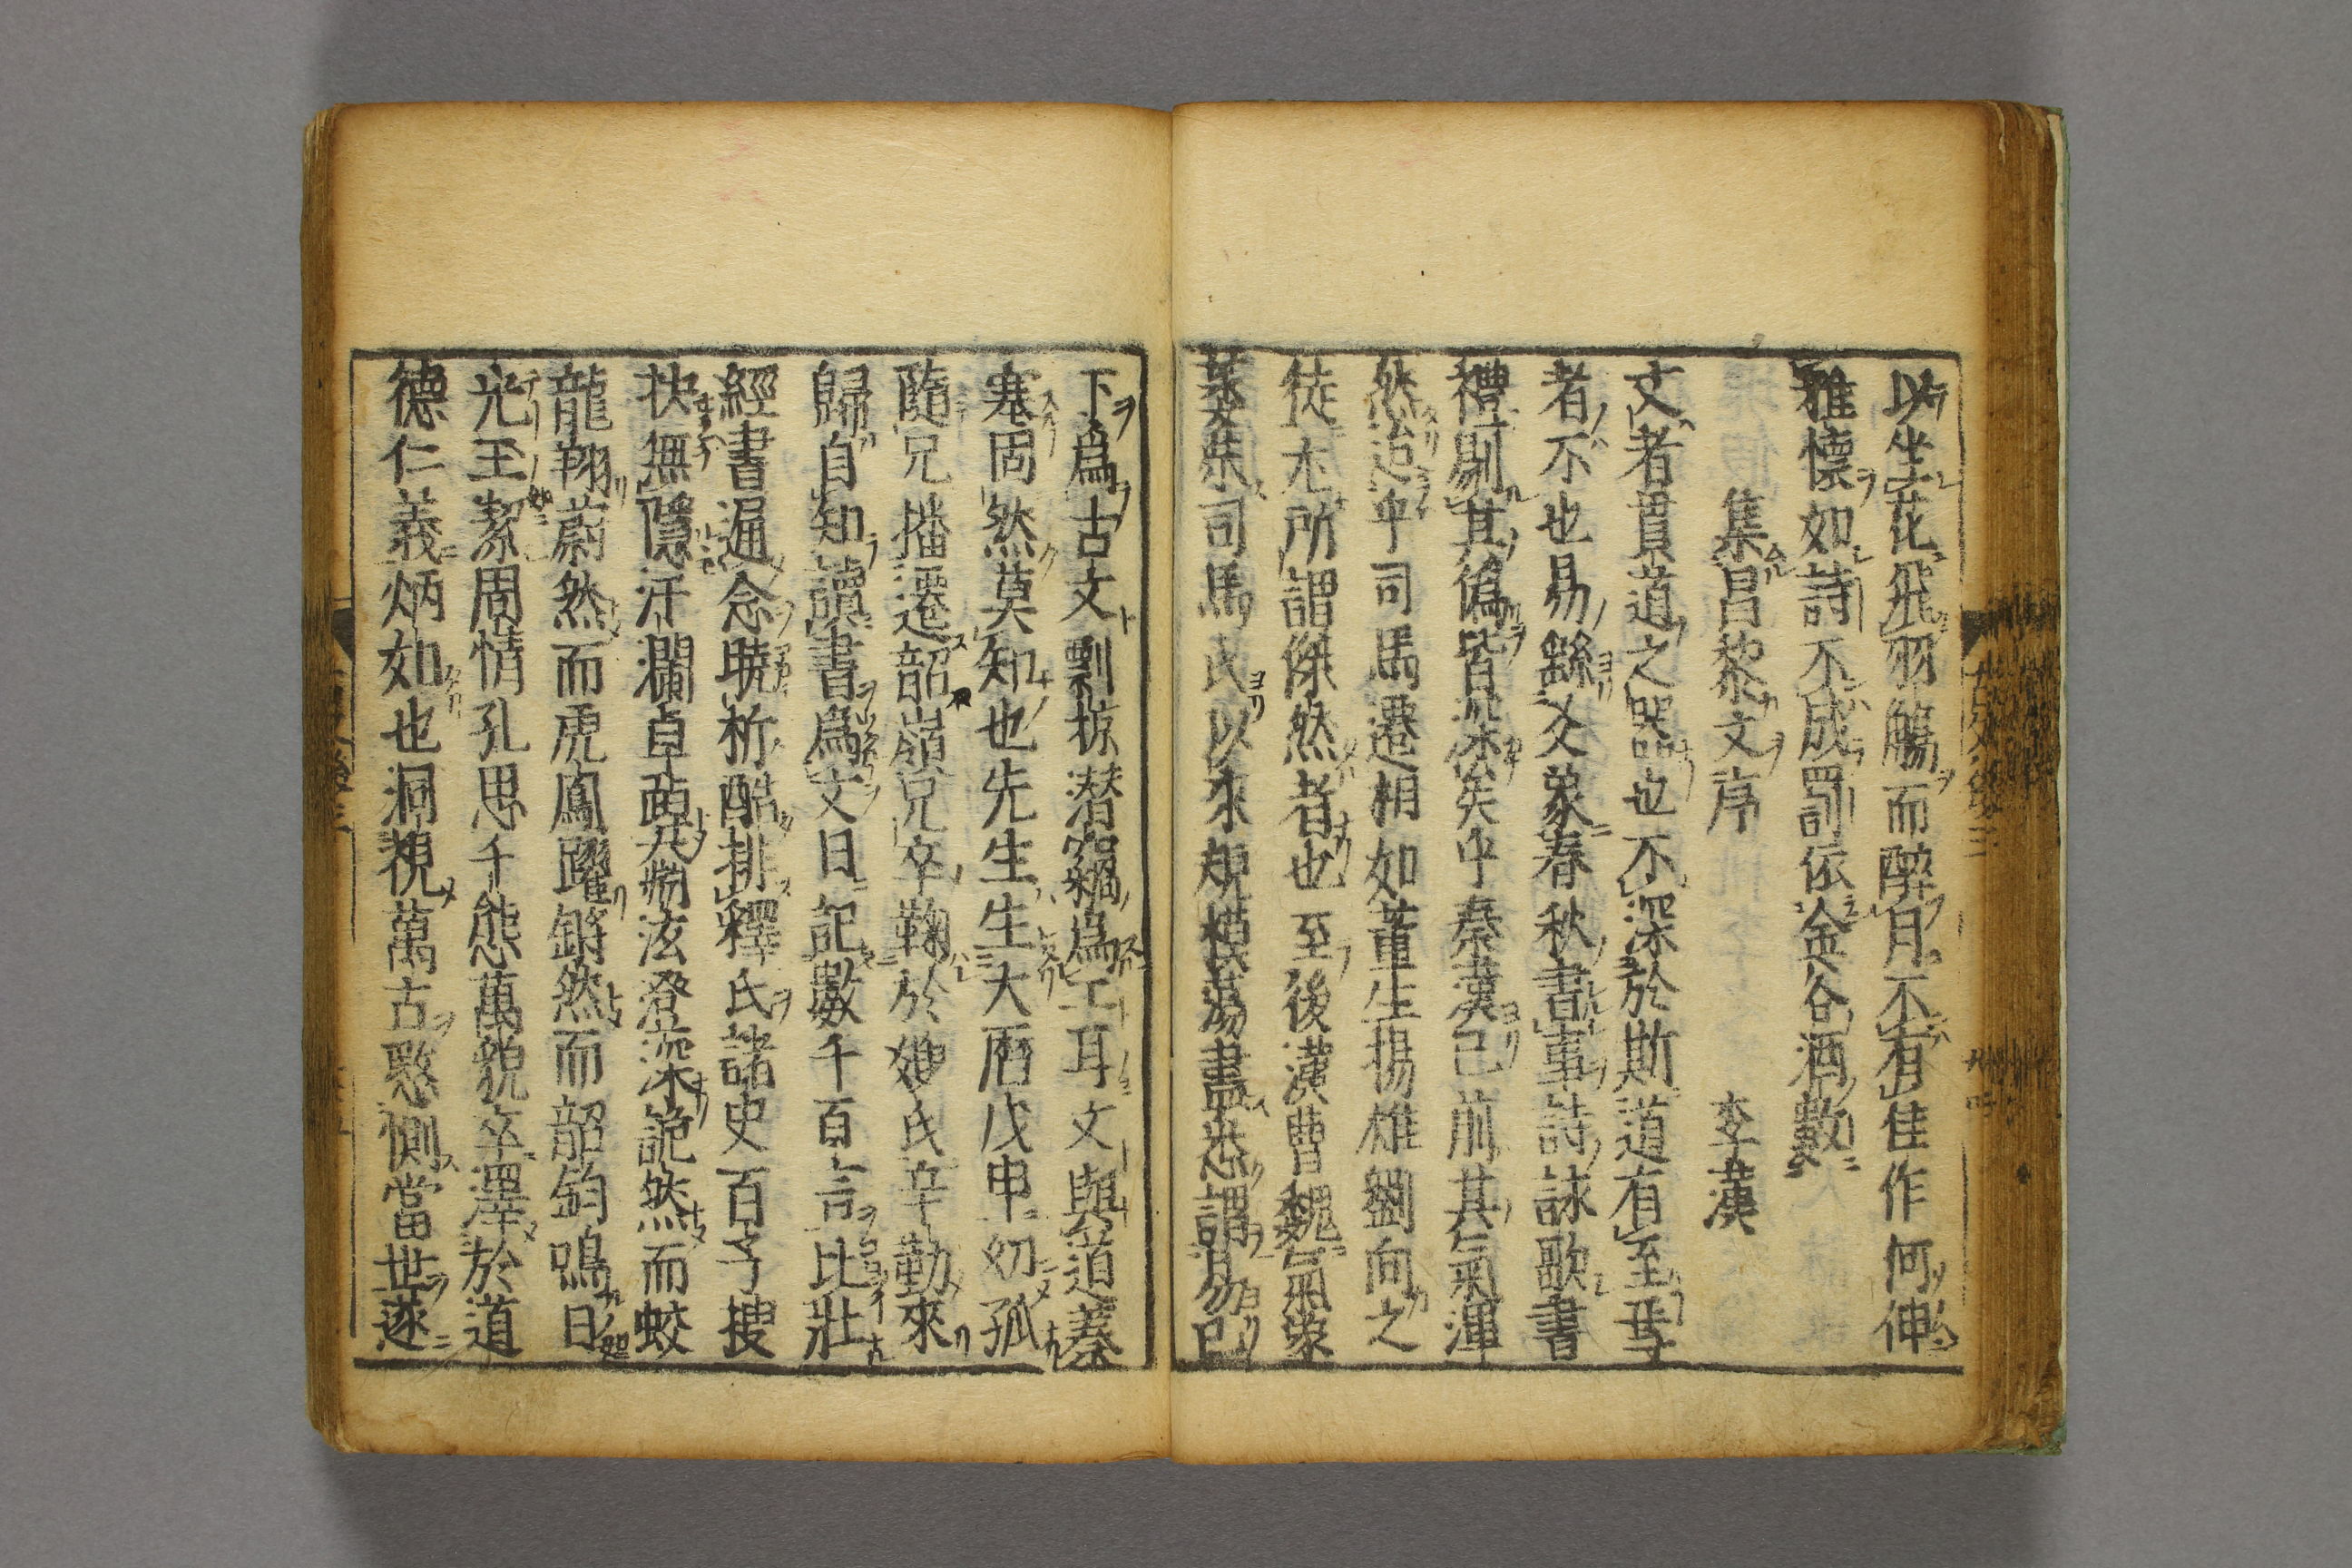 以坐花飛羽觴而醉月不有佳作何伸
雅懷如詩不成罰依金谷酒數
集昌黎文序 李漢
文者貫道之器也不深於斯道有至焉
者不也易繇爻象春秋書事詩詠歌書
禮剔其偽皆深矣乎秦漢已前其氣渾
然迨乎司馬遷相如董生揚雄劉向之
徒尤所謂傑然者也至後漢曹魏氣象
萎苶司馬氏以來規模蕩盡悉謂易已
下為古文剽掠潜竊為工耳文與道蓁
塞固然莫知也先生生大曆戊申幼孤
隨兄播遷韶嶺兄卒鞠於嫂氏辛勤來
歸自知讀書為文日記數千百言比壯
經書通念曉析酷排釋氏諸史百子搜
抉無隱汗瀾卓踔奫泫澄深詭然而蛟
龍翔蔚然而虎鳳躍鏘然而韶鈞鳴日
光玉潔周情孔思千態萬貌卒澤於道
德仁義炳如也洞視萬古愍惻當世遂